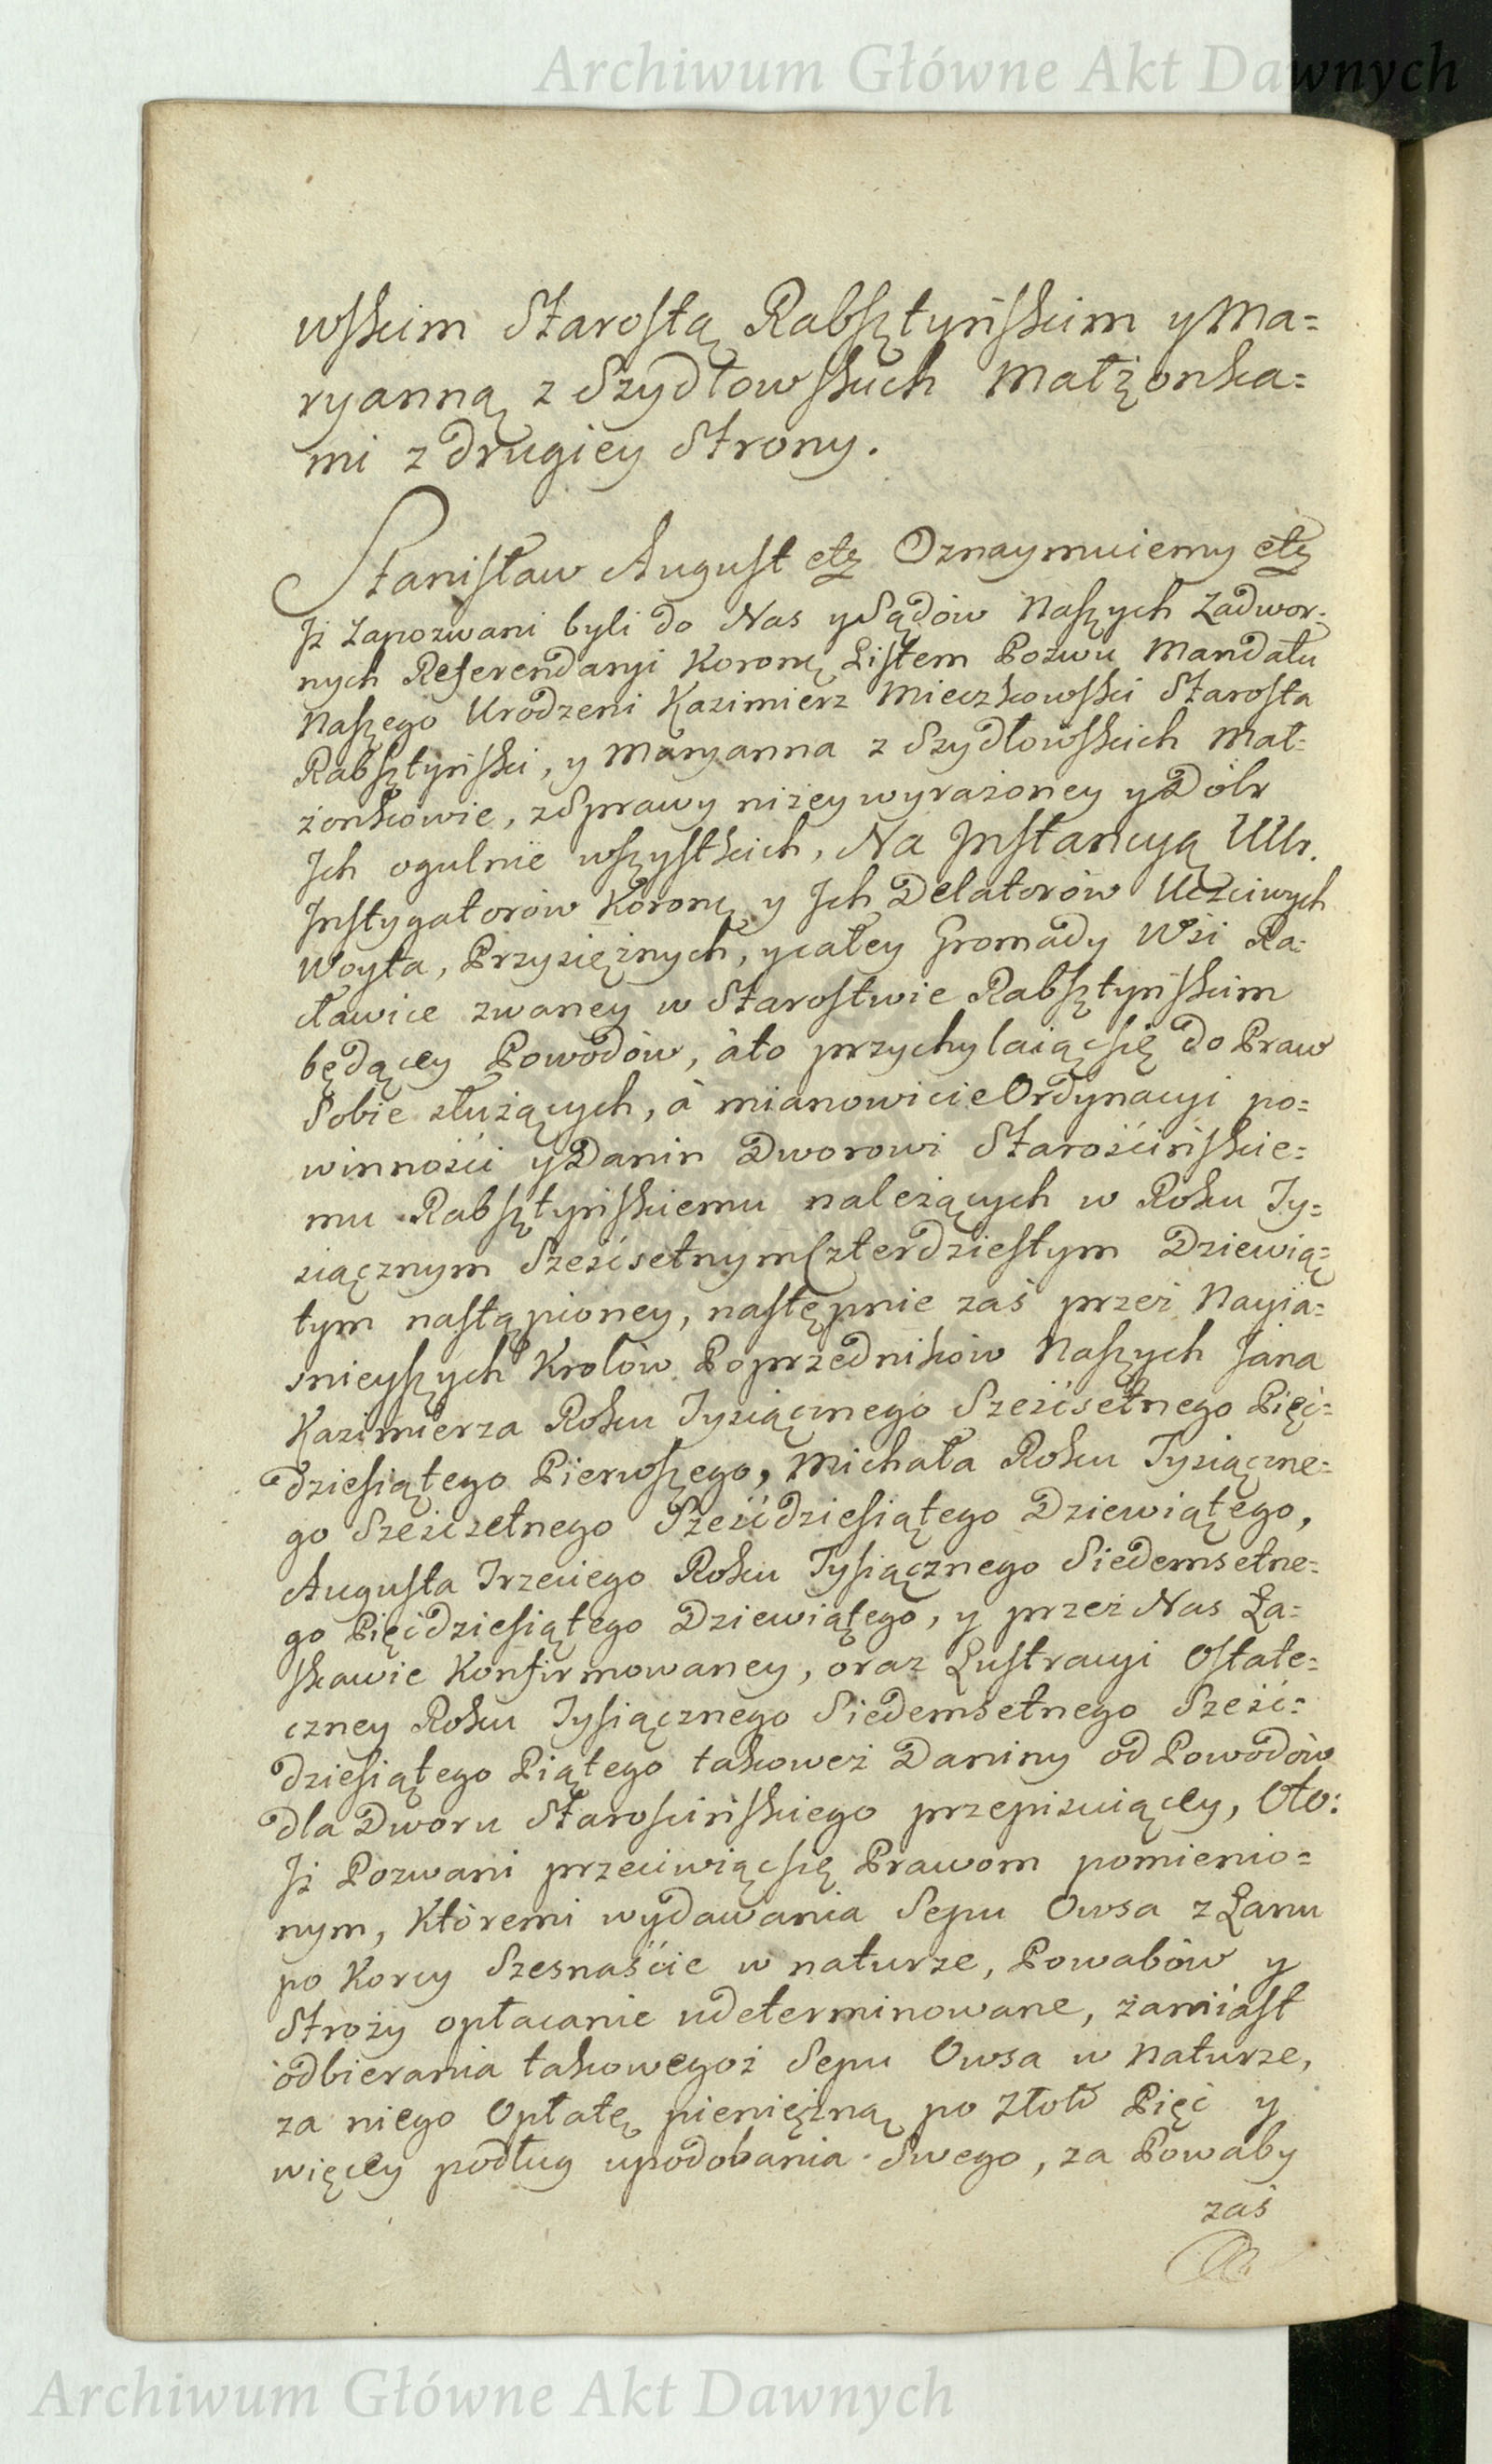 Archiwum Główne Akt Dawnych
wskim Starostą Rabsztyńskim y Ma=
ryanną z Szydłowskich Małżonka=
mi z drugiey Strony.
Stanisław August etc Oznaymuiemy etc
Jż Zapozwani byli do Nas y Sądów Naszych Zadwor=
nych Referendaryi Koronę Listem Pozwu Mandatu
Naszego Urodzeni Kazimierz Mieczkowski Starosta
Rabsztyński, y Maryanna z Szydłowskich Mał=
żonkowie, z Sprawy niżey wyrażoney y Dóbr
Jch ogulnie wszystkich, Na Jnstancyą UUr.
Jnstygatorów Koronę y Jch Delatorów Uczciwych
Woyta, Przysiężnych, y całey Gromady Wsi Ra=
cławice zwaney w Starostwie Rabsztyńskim
będącey Powodów, á to przychylaiąc się do Praw
Sobie służących, á mianowicie Ordynacyi po=
winności y Danin Dworowi Starościńskie=
mu Rabsztyńskiemu należących w Roku Ty=
siącznym Sześćsetnym Czterdziestym Dziewią=
tym nastąpioney, następnie zaś przez Nayia=
śnieyszych Krolów Poprzedników Naszych Jana
Kazimierza Roku Tysiącznego Sześćsetnego Pięć=
dziesiątego Pierwszego, Michała Roku Tysiączne=
go Sześćsetnego Sześćdziesiątego Dziewiątego,
Augusta Trzeciego Roku Tysiącznego Siedemsetne=
go Pięćdziesiątego Dziewiątego, y przez Nas Ła=
skawie Konfirmowaney, oraz Lustracyi Ostate=
czney Roku Tysiącznego Siedemsetnego Sześć=
dziesiątego Piątego takoweż Daniny od Powodów
dla Dworu Starościńskiego przepisuiącey, Oto:
Jż Pozwani przeciwiąc się Prawom pomienio=
nym, Któremi wydawania Sepu Owsa z Łanu
po Korcy Szesnaście w naturze, Powabów y
Stroży opłacanie udeterminowane, zamiast
odbierania takowegoż Sepu Owsa w Naturze,
za niego Opłatę pieniężną po Złotw Pięć y
więcey podług upodobania Swego, za Powaby
zaś
Archiwum Główne Akt Dawnych